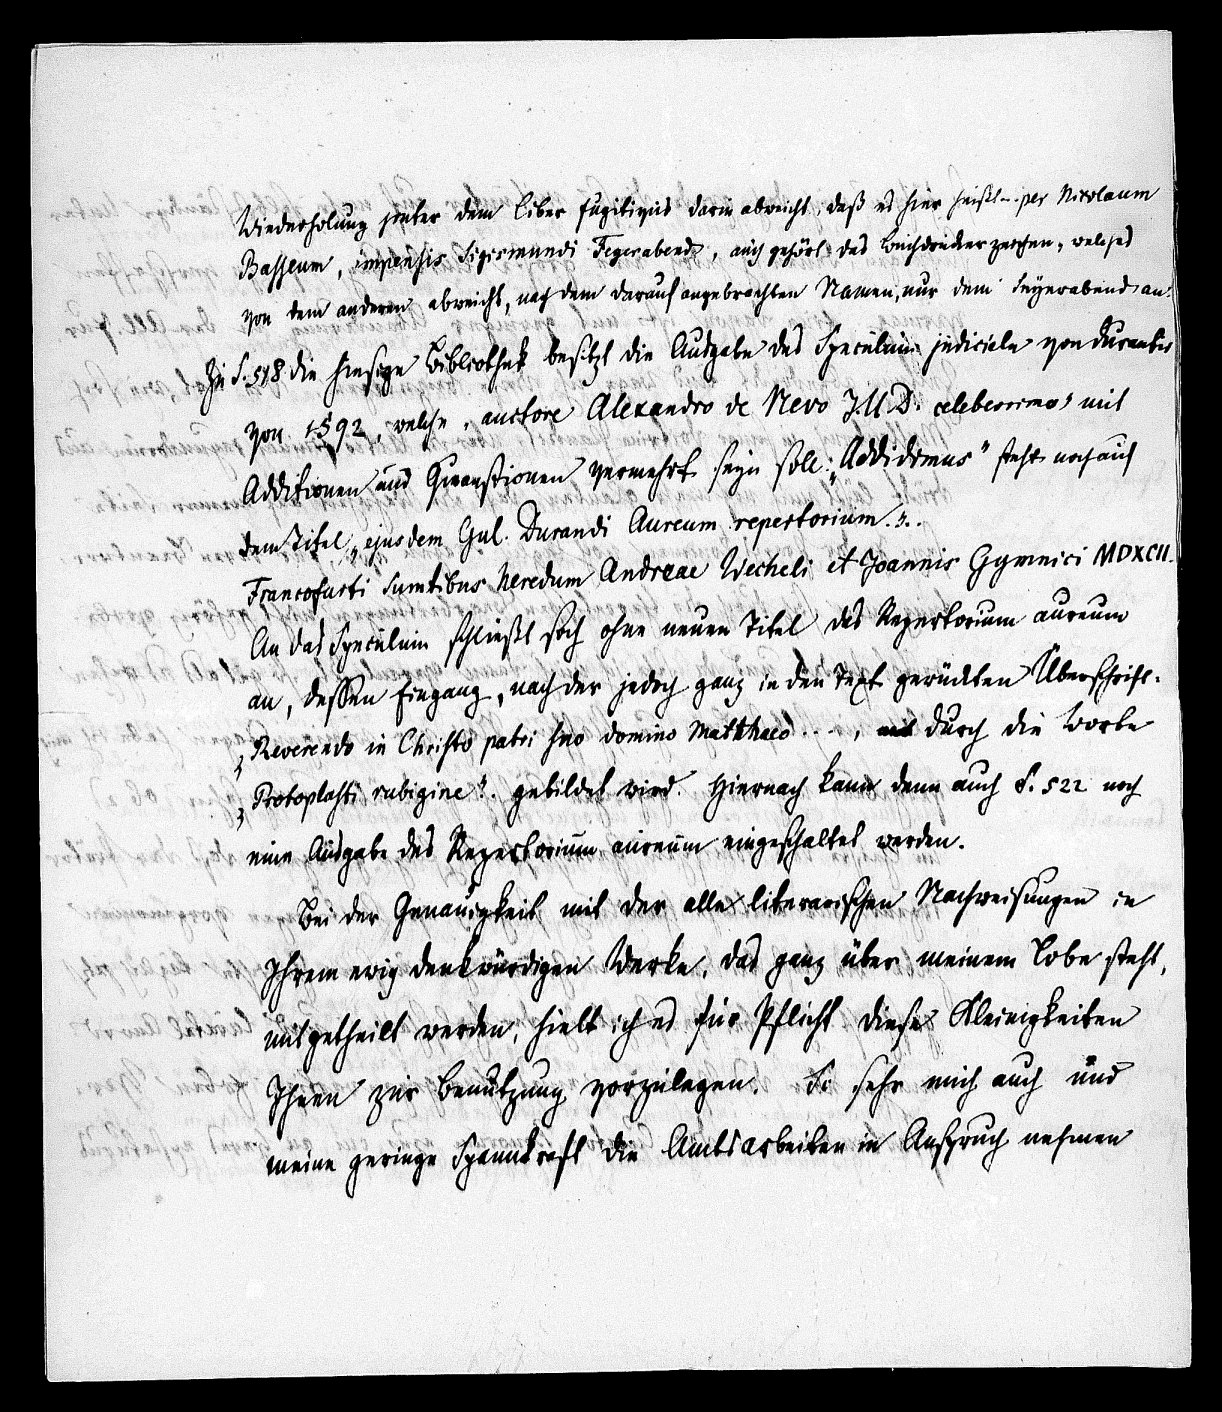 Wiederholung hinter dem Liber fugitivus darin abweicht, daß es hier heißt - per Nikolaum
Basseum, impensis Sigismundi Feyerabend, auch gehört das Buchdruckerzeichen, welches
von dem anderen abweicht, nach dem darauf angebrachten Namen, nur dem Feyerabend an.
Zu S. 518 die hiesige Bibliothek besitzt die Ausgabe des Speculum judiciale von Durantis
von 1592, welche, auctore Alexandro de Nevo J.U.D. celeberrimo, mit
Additionen und Quaestionen vermehrt seyn soll: "Addidimus" steht noch auf
dem Titel "ejusdem Gul. Durandi Aureum repertorium.".
Francofurti sumtibus heredum Andreae Wecheli et Joannis Gymnici MDXCII.
An das Speculum schließt sich ohne neuen Titel das Repertorium aureum
an, dessen Eingang, nach der jedoch ganz in den Text gerückten Überschrift:
"Reverendo in Christo patri suo domino Matthaeo ....", durch die Worte
"Protoplasti rubigine". gebildet wird. Hiernach kann denn auch S. 522 noch
eine Ausgabe des Repertorium aureum eingeschaltet werden.
Bei der Genauigkeit mit der alle literarischen Nachweisungen in
Ihrem ewig denkwürdigen Werke, das ganz über meinem Lobe steht,
mitgetheilt werden, hielt ich es für Pflicht diese Kleinigkeiten
Ihnen zur Benutzung vorzulegen. So sehr mich auch und
meine geringe Spannkraft die Amtsarbeiten in Anspruch nehmen